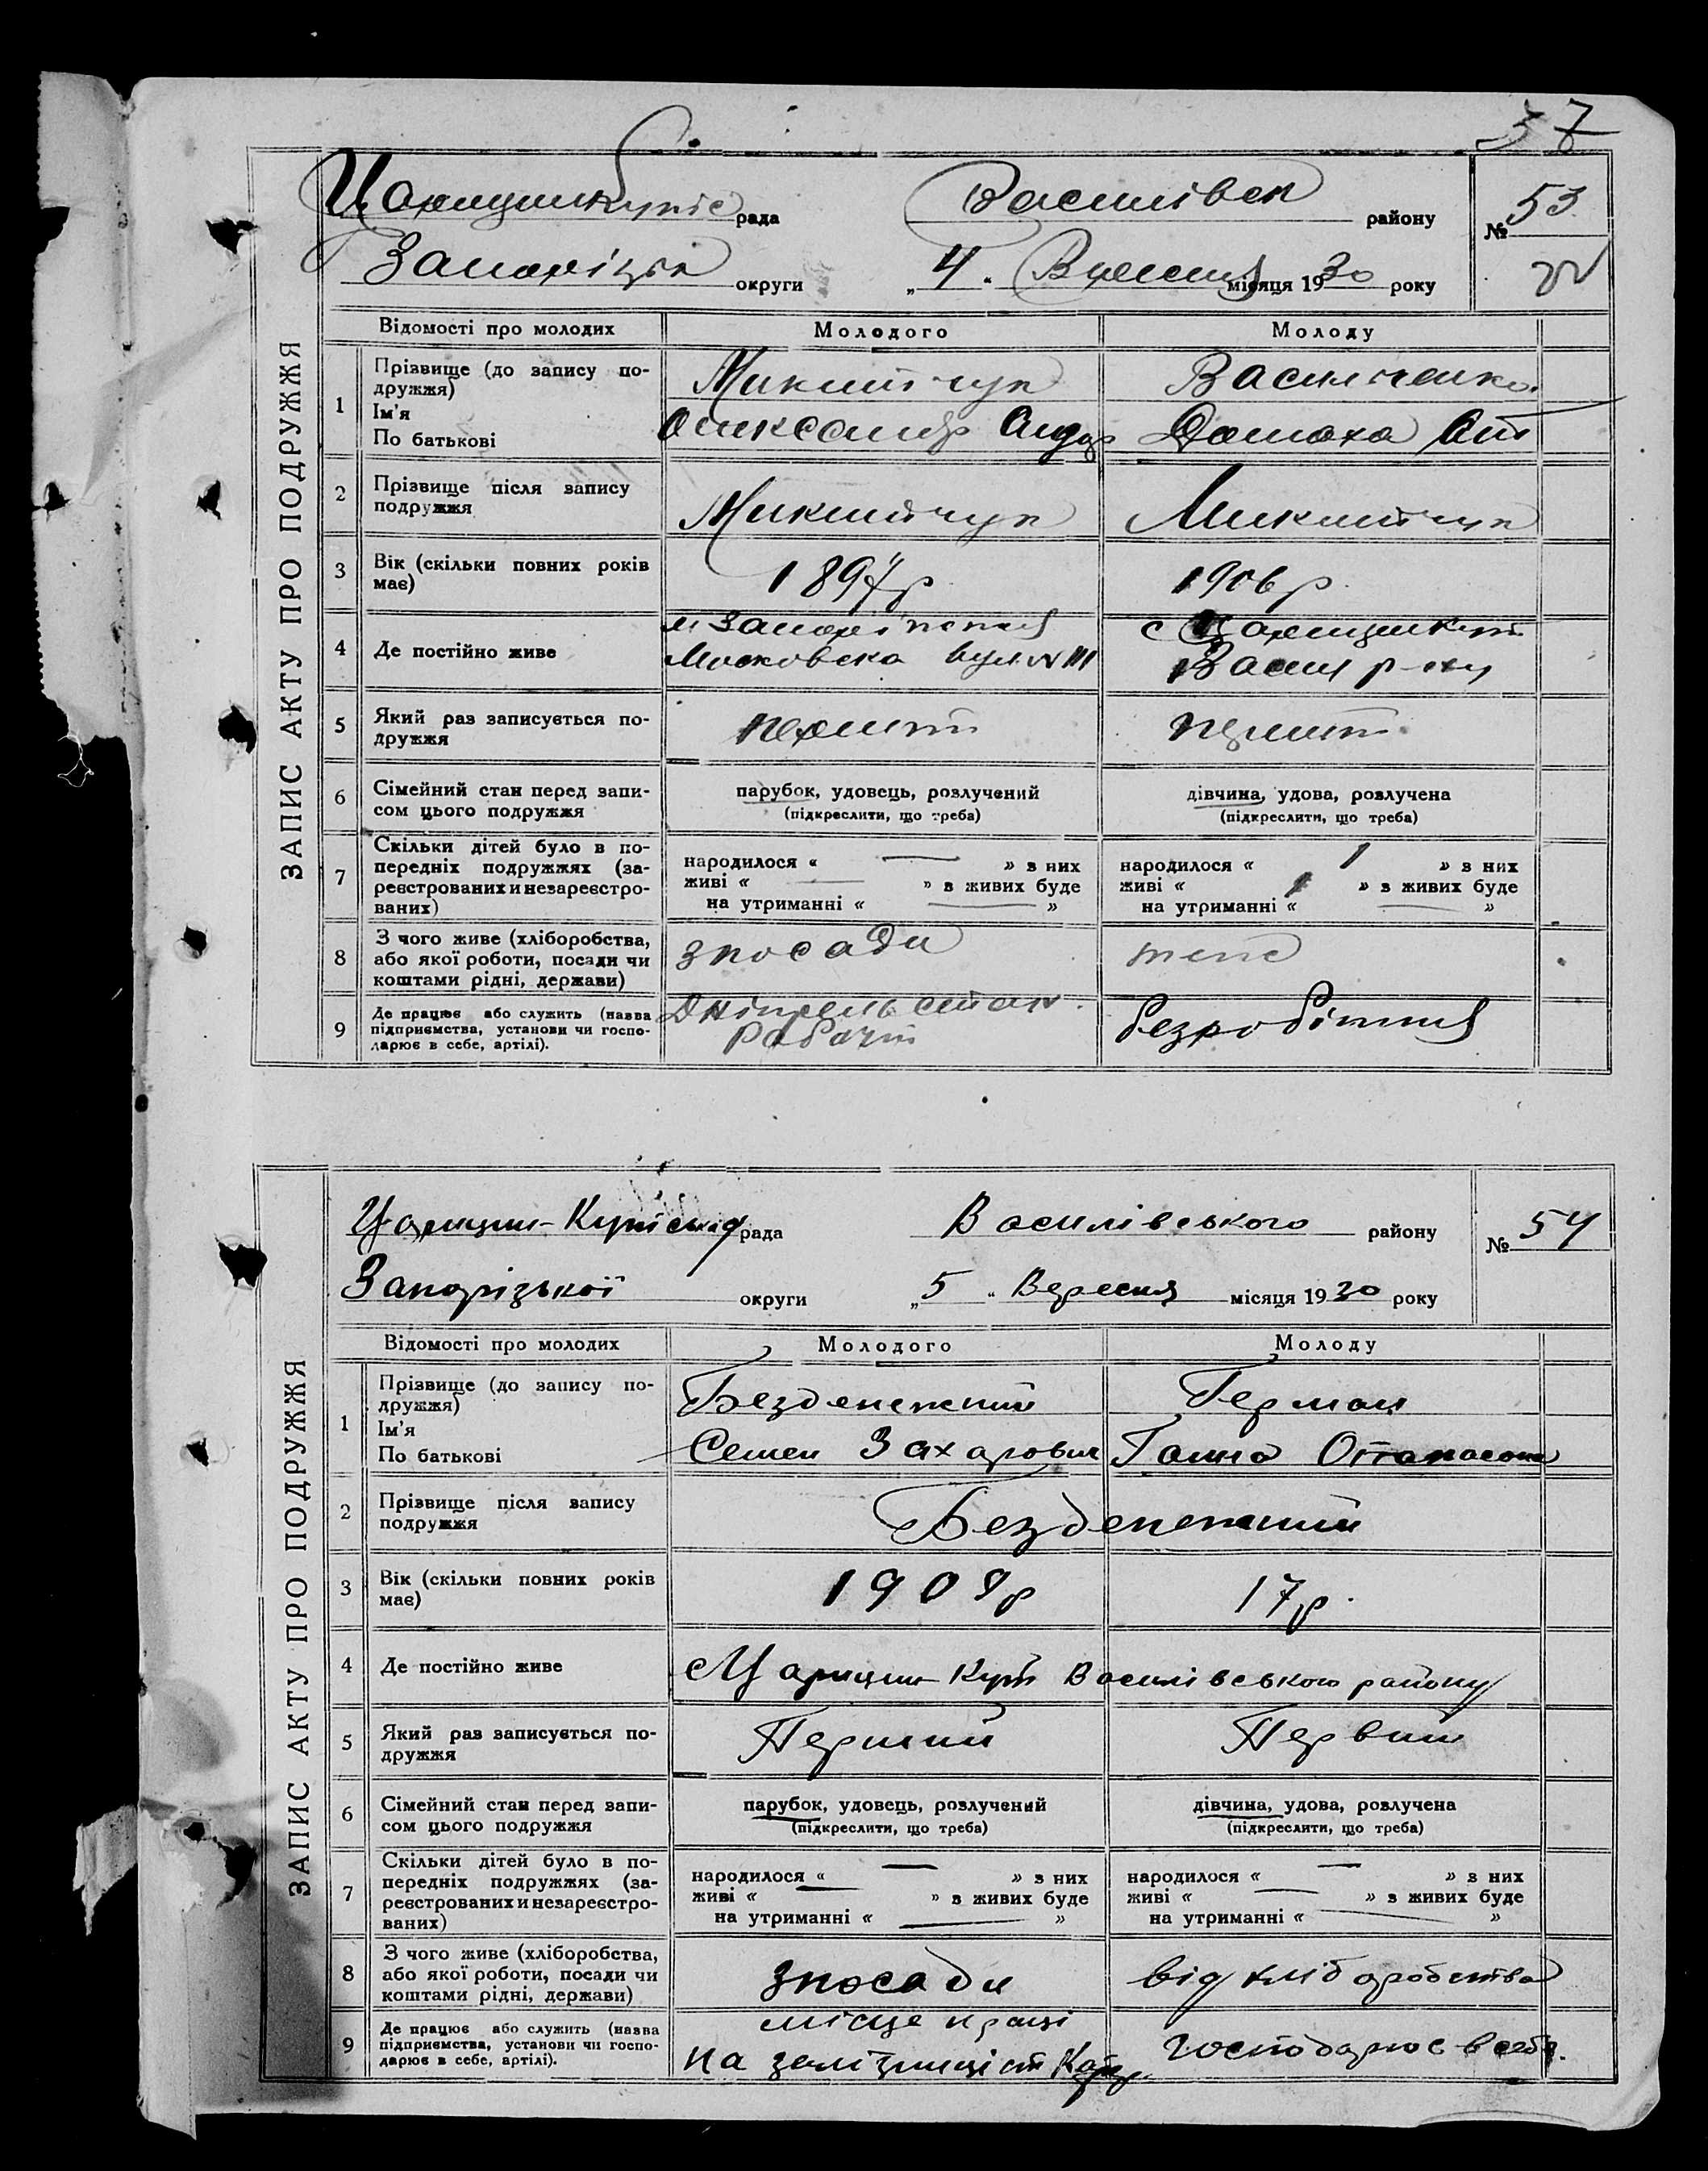 37
Царицинкутс рада Василівск району № 53
Запорізск округи „4“ Вересня місяця 1930 року
ЗАПИС АКТУ ПРО ПОДРУЖЖЯ
Відомості про молодих Молодого Молоду
1 Прізвище (до запису по-
дружжя)
Ім'я
По батькові
Микитчук Василченко
Олександр Андр Домаха Ант
2 Прізвище після запису
подружжя
Микитчук Микитчук
3 Вік (скільки повних років
має)
1897р 1906 р.
4 Де постійно живе
м Запоріжжя
Московска вул. N III
с Царицинкут
Васил р-ну
5 Який раз записується по-
дружжя
перший перший
6 Сімейний стан перед запи-
сом цього подружжя
парубок, удовець, розлучений дівчина, удова, розлучена
(підкреслити, що треба) (підкреслити, що треба)
7 Скільки дітей було в по-
передніх подружжях (за-
реєстрованих и незареєстро-
ваних)
народилося « — » з них народилося « 1 » з них
живі « — » в живих буде живі « 1 » в живих буде
на утриманні « — » на утриманні « — »
8 З чого живе (хліборобства,
або якої роботи, посади чи
коштами рідні, держави)
з посади теж
9 Де працює або служить (назва
підприємства, установи чи госпо-
дарює в себе, артілі).
Робочий безробітня
Царицин-Кутська рада Василівського району № 54
Запорізької округи „5“ Вересня місяця 1930 року
ЗАПИС АКТУ ПРО ПОДРУЖЖЯ
Відомості про молодих Молодого Молоду
1 Прізвище (до запису по-
дружжя)
Ім'я
По батькові
Безденежний Герман
Семен Захарович Ганна Опанасовна
2 Прізвище після запису
подружжя
Безденежний
3 Вік (скільки повних років
має)
1909р 17р.
4 Де постійно живе
с Царицин Кут Василівського району
5 Який раз записується по-
дружжя
Перший Первий
6 Сімейний стан перед запи-
сом цього подружжя
парубок, удовець, розлучений дівчина, удова, розлучена
(підкреслити, що треба) (підкреслити, що треба)
7 Скільки дітей було в по-
передніх подружжях (за-
реєстрованих и незареєстро-
ваних)
народилося « — » з них народилося « — » з них
живі « — » в живих буде живі « — » в живих буде
на утриманні « — » на утриманні « — »
8 З чого живе (хліборобства,
або якої роботи, посади чи
коштами рідні, держави)
з посади від хліборобства
9 Де працює або служить (назва
підприємства, установи чи госпо-
дарює в себе, артілі).
місце праці
на залізниці ст
господарює в себе.